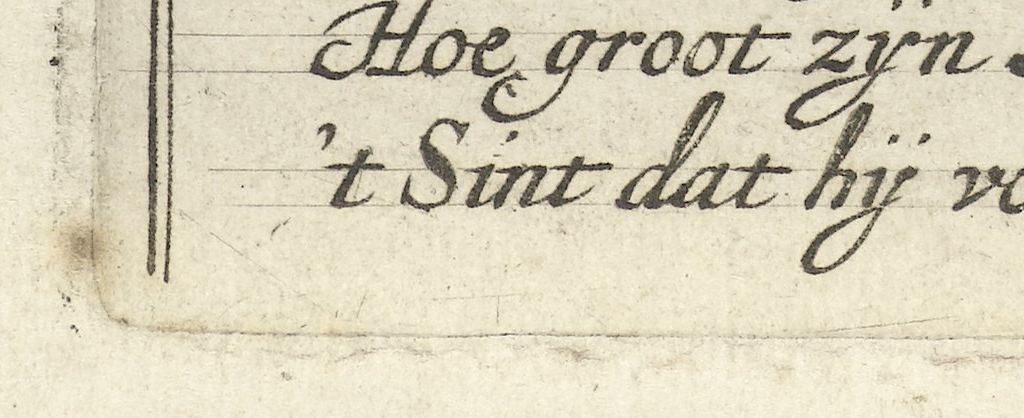 Hoe groot zijn
't Sint dat hij